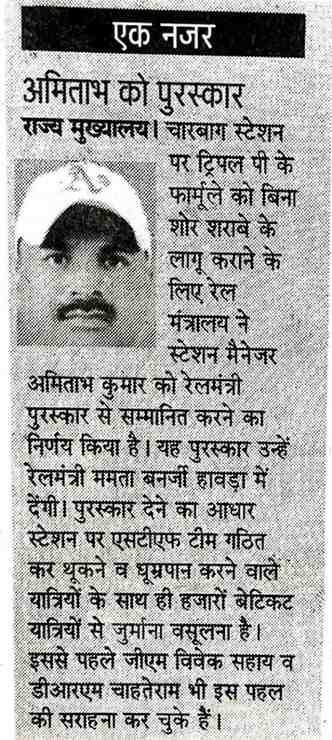 एक नजर
अमिताभ को पुरस्कार
राज्य मुख्यालय। चारबाग स्टेशन
पर ट्रिपल पी के
फार्मूले को बिना
शोर शराबे के
लागू कराने के
लिए रेल
मंत्रालय ने
स्टेशन मैनेजर
अमिताभ कुमार को रेलमंत्री
पुरस्कार से सम्मानित करने का
निर्णय किया है। यह पुरस्कार उन्हें
रेलमंत्री ममता बनर्जी हावड़ा में
देंगी। पुरस्कार देने का आधार
स्टेशन पर एसटीएफ टीम गठित
कर थूकने व धूम्रपान करने वाले
यात्रियों के साथ ही हजारों बेटिकट
यात्रियों से जुर्माना वसूलना है।
इससे पहले जीएम विवेक सहाय व
डीआरएम चाहतेराम भी इस पहल
की सराहना कर चुके हैं।